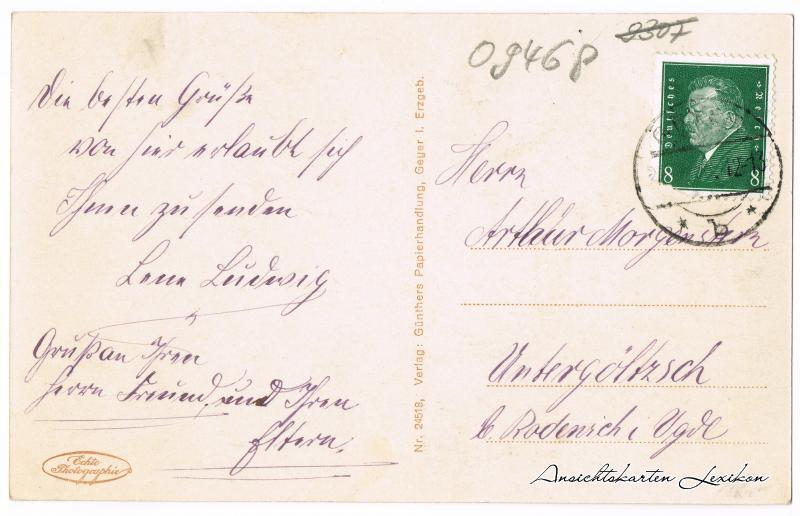 0946P
2307
Die besten Grüße
von hier erlaubt sich
Ihnen zu senden
Lene Ludwig
Gruß an Ihren
Herrn Freund, und Ihren
Eltern.
Echte
Photographie
Nr. 24518, Verlag: Günthers Papierhandlung, Geyer i. Erzgeb.
Deutsches Reich
8 8
* b *
Herrn
Arthur Morgenstern
Untergöltzsch
b. Rodewisch i. Vgtl.
Ansichtskarten Lexikon